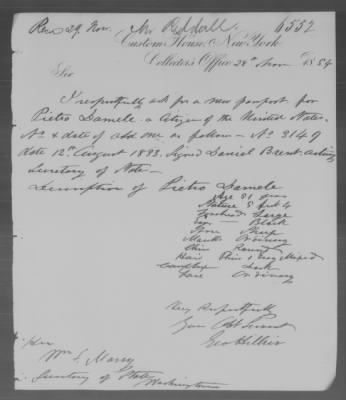 Recd 29 Nov. Mr Reddall 6552
Custom House, New York
Collector's Office 28th Nov 1854
Sir
I respectfully ask for a new passport for
Pietro Damele a Citizen of the United States.
No & date of old one as follow - No 3149
date 12th August 1833. Signed Daniel Brent acting
Secretary of State -
Description of Pietro Damele
Age 51 years
Stature 5 feet 4
Forehead Large
Eyes Black
Nose Sharp
Mouth Ordinary
Chin Round
Hair Thin & Grey Mixed
Complex Dark
Face Ordinary
Very Respectfully
Your Obt Servant
Geo Hillier
Hon
Wm L. Marcy
Secretary of State
Washington